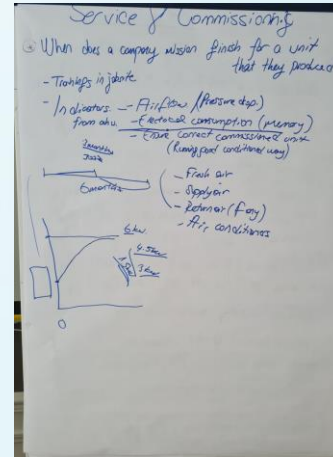 Service & Commissioning
When does a company mission finish for a unit
that they produced
- in jobsite
- Indicators - Airflow / (Pressure drop)
from ahu. - Electrical consumption (memory)
- Ensure correct commissioned unit
(Running good conditioned way)
6 months
- Fresh air
- Supply air
- Return air (if any)
- Air conditioners
6 kw.
4.5 kw
3 kw
0